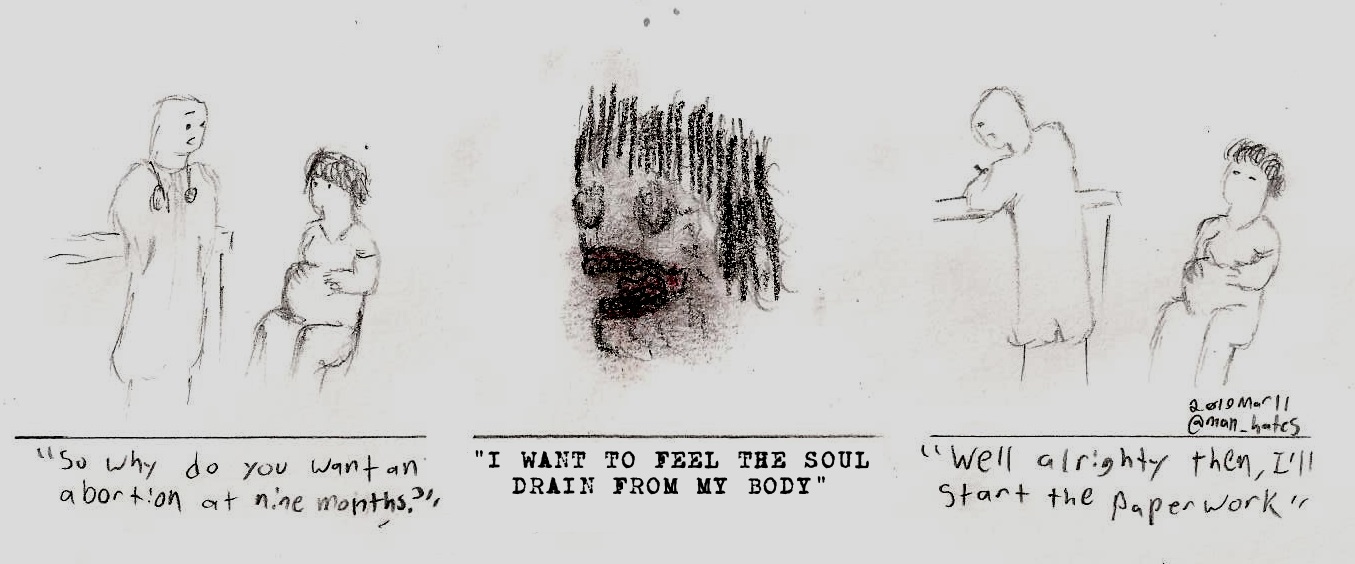 "So why do you want an
abortion at nine months?"
"I WANT TO FEEL THE SOUL
DRAIN FROM MY BODY"
2019 Mar 11
@man_hates
"Well alrighty then, I'll
start the paperwork"